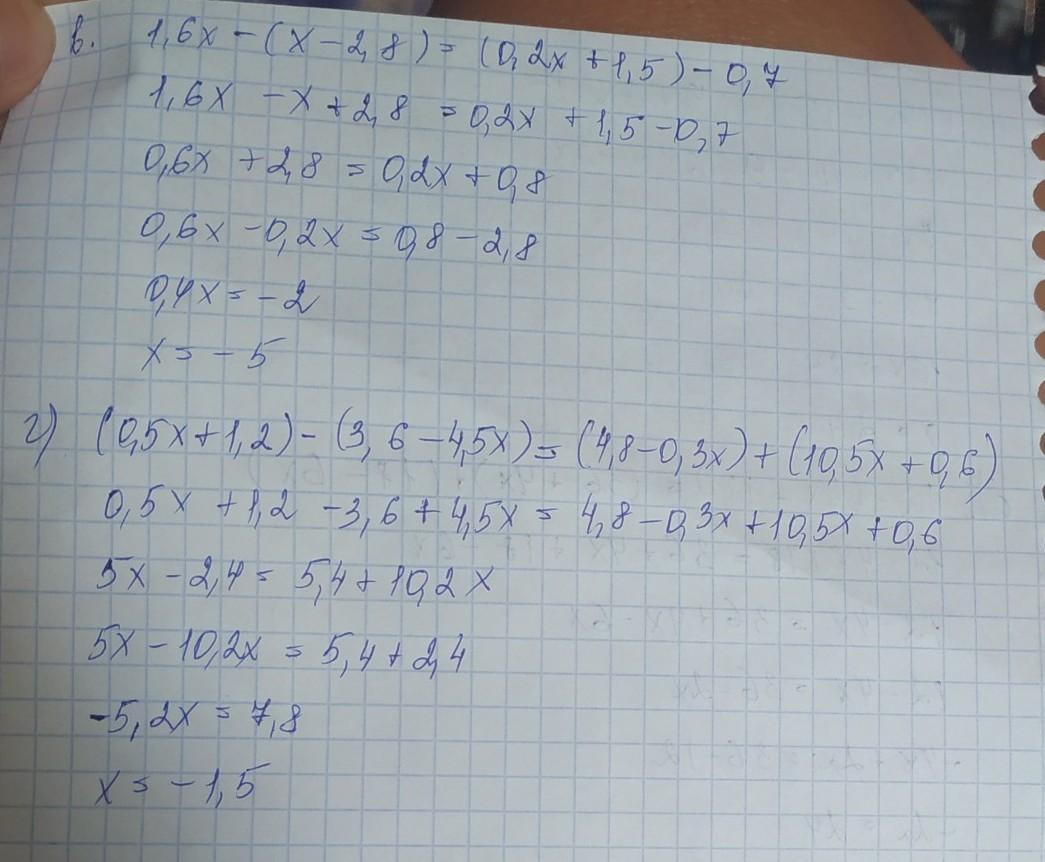 в. 1,6x - (x - 2,8) = (0,2x + 1,5) - 0,7
1,6x - x + 2,8 = 0,2x + 1,5 - 0,7
0,6x + 2,8 = 0,2x + 0,8
0,6x - 0,2x = 0,8 - 2,8
0,4x = - 2
x = - 5
г) (0,5x + 1,2) - (3,6 - 4,5x) = (4,8 - 0,3x) + (10,5x + 0,6)
0,5x + 1,2 - 3,6 + 4,5x = 4,8 - 0,3x + 10,5x + 0,6
5x - 2,4 = 5,4 + 10,2x
5x - 10,2x = 5,4 + 2,4
-5,2x = 7,8
x = - 1,5